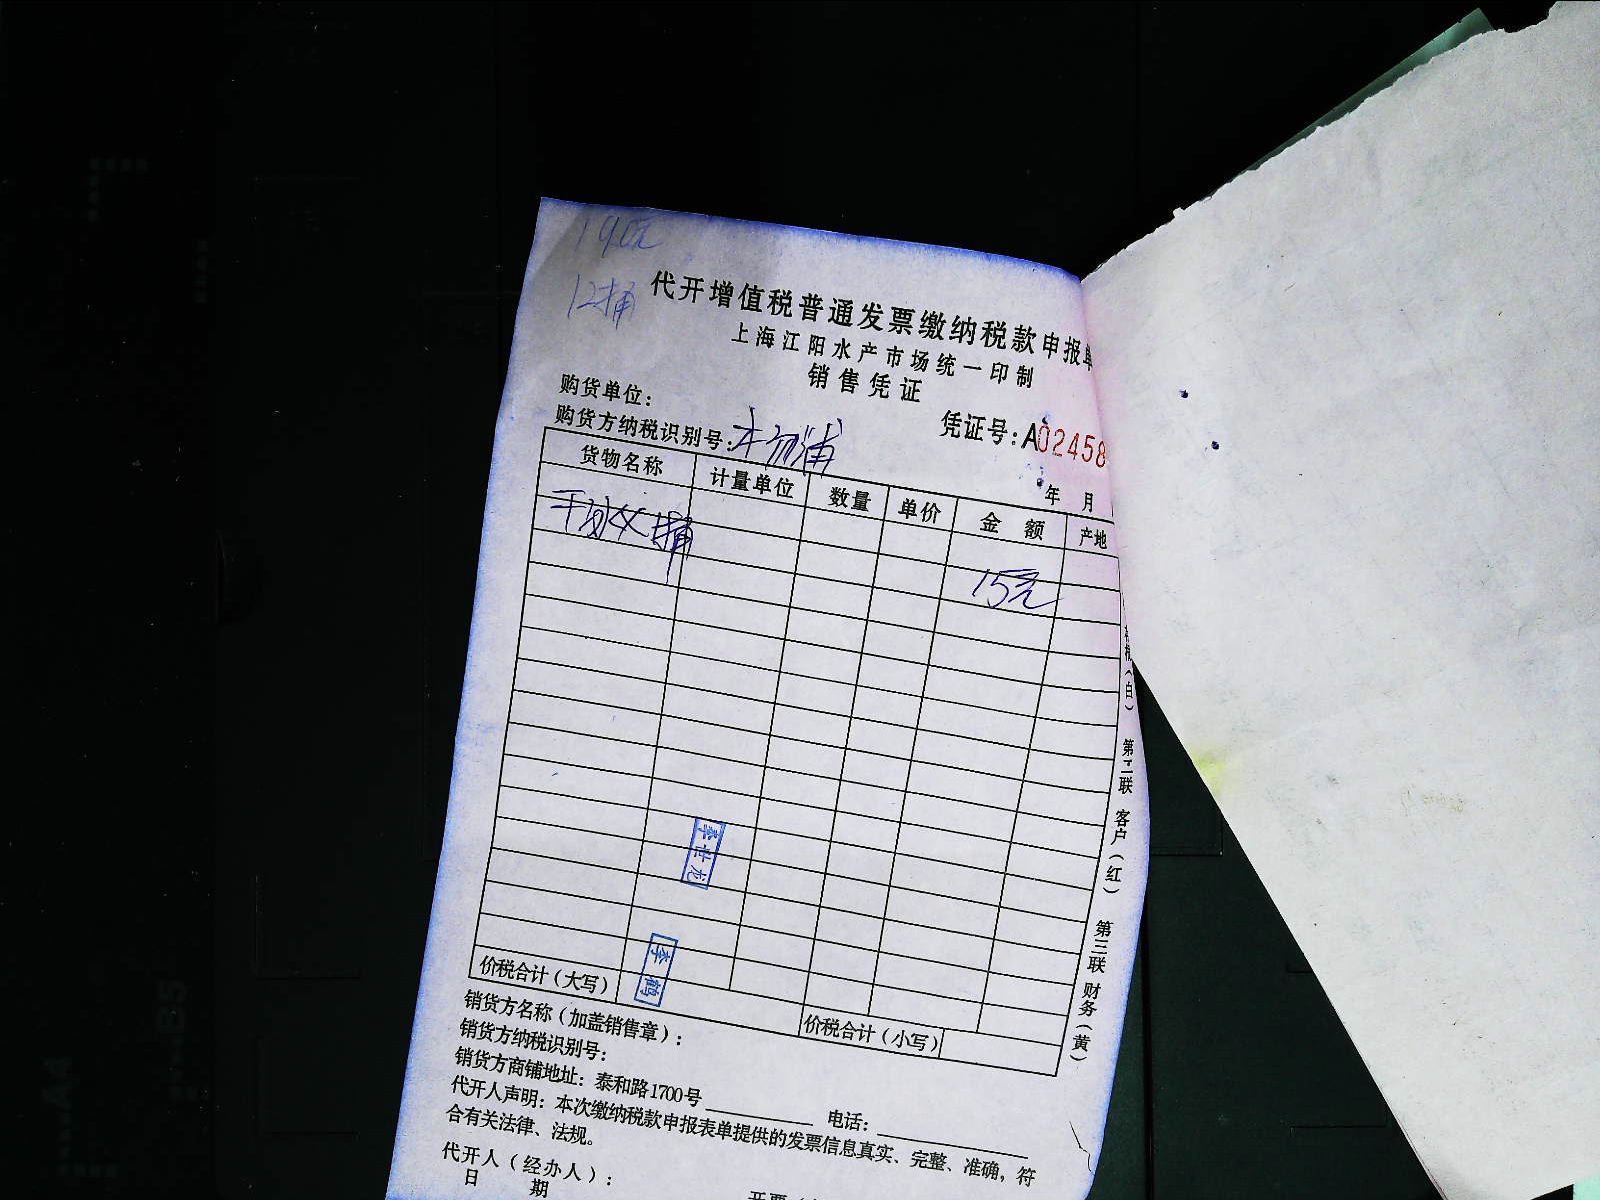 190元
12捅
代开增值税普通发票缴纳税款申报单
上海江阳水产市场统一印制
销售凭证
购货单位:
购货方纳税识别号:
凭证号:A02458
年 月
货物名称 计量单位 数量 单价 金额 产地
15元
李世龙
李鹤
价税合计(大写)
价税合计(小写)
销货方名称(加盖销售章):
销货方纳税识别号:
销货方商铺地址:泰和路1700号 电话:
代开人声明:本次缴纳税款申报表单提供的发票信息真实、完整、准确,符
合有关法律、法规。
代开人(经办人):
日 期
(白) 第二联 客户(红) 第三联 财务(黄)